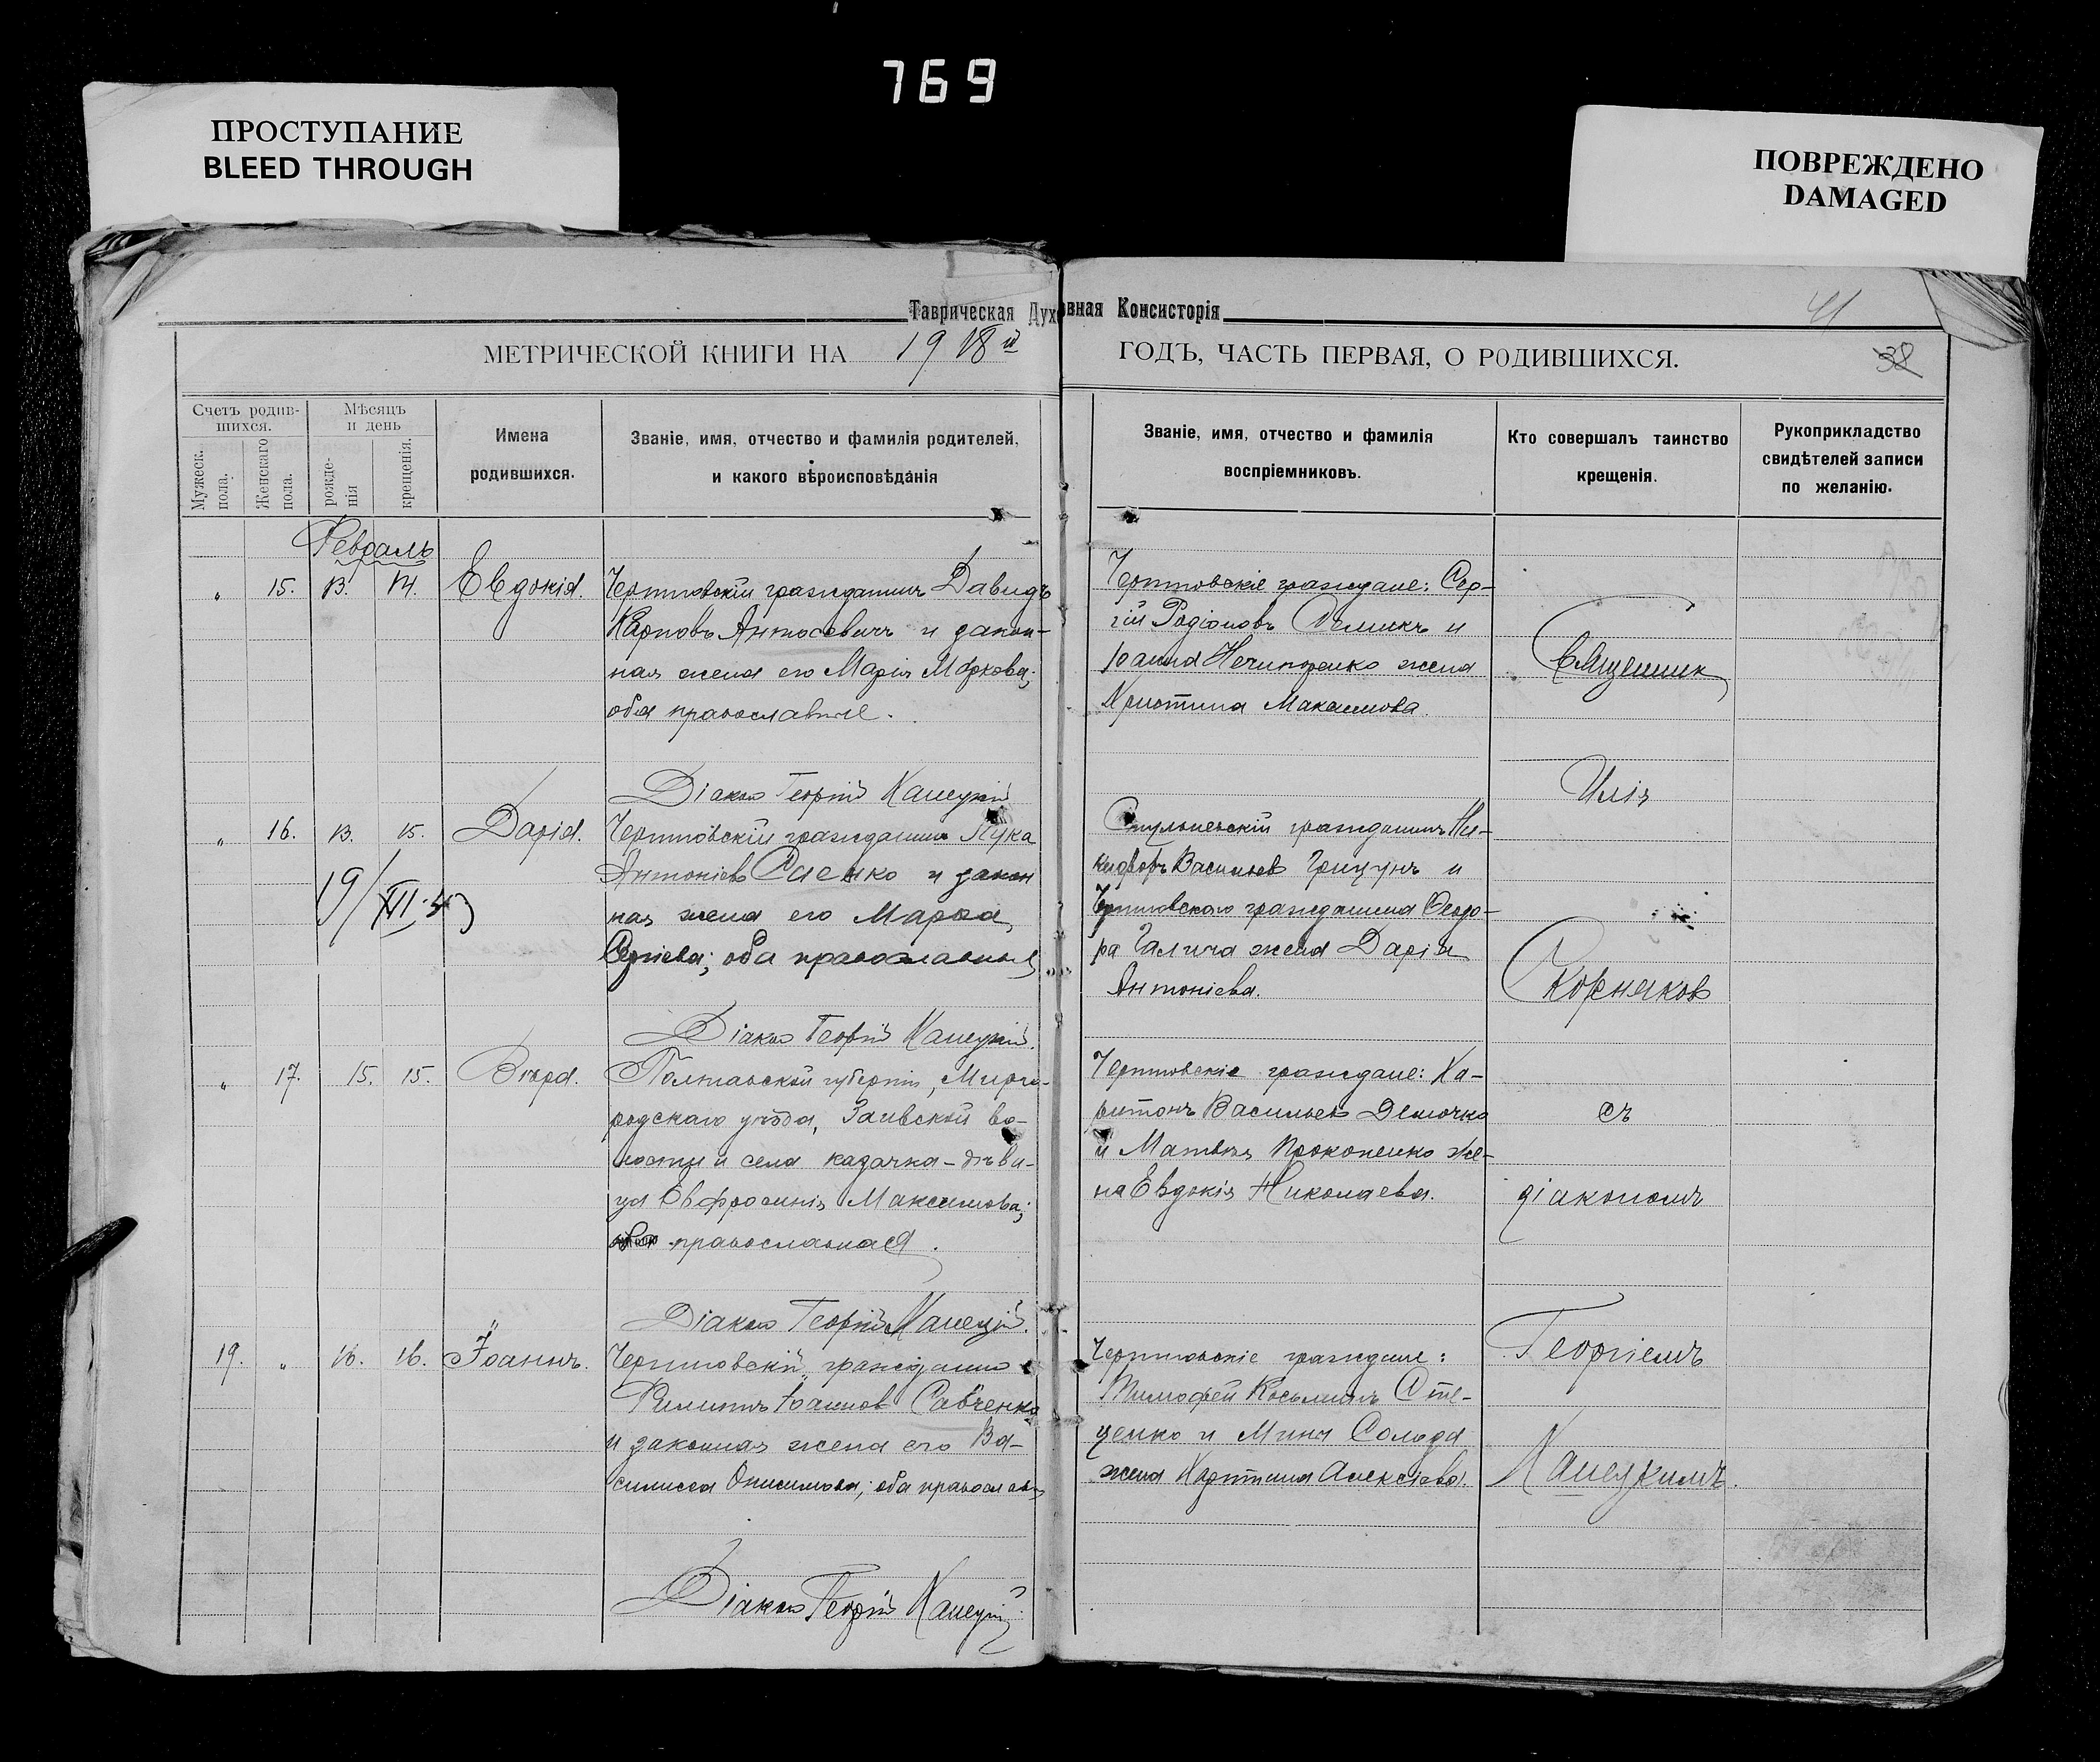 769
ПРОСТУПАНИЕ
BLEED THROUGH
ПОВРЕЖДЕНО
DAMAGED
Таврическая Духовная Консисторія
41
МЕТРИЧЕСКОЙ КНИГИ НА 1918й ГОДЪ, ЧАСТЬ ПЕРВАЯ, О РОДИВШИХСЯ.
38
Счетъ родив-
шихся.
Мужеск. пола.
Женскаго пола.
Мѣсяцъ и день
рожде-
нія
крещенія.
Имена
родившихся.
Званіе, имя, отчество и фамилія родителей,
и какого вѣроисповѣданія
Званіе, имя, отчество и фамилія
воспріемниковъ.
Кто совершалъ таинство
крещенія.
Рукоприкладство
свидѣтелей записи
по желанію.
Февраль
" 15. 13. 14. Евдокія.
гражданинъ Давидъ
Карповъ Антосевичъ и закон-
ная жена его Марія Маркова;
оба православные.
Діаконъ Георгій
граждане: Сер-
гій Родіоновъ и
Іоанна Нечипоренко жена
Христина Максимова.
" 16. 13. 15. Дарія.
19/XII-43
гражданинъ Лука
Антоніевъ Саенко и закон
ная жена его Марѳа
Сергіева; оба православные
Діаконъ Георгій
гражданинъ Ни-
кифоръ Васильевъ Грицунъ и
гражданина Ѳеодо-
ра Галича жена Дарія
Антоніева.
" 17. 15. 15. Вѣра.
Полтавской губерніи, Мирго-
родскаго уѣзда, во-
лости и села казачка-дѣви-
ца Евфросинія Максимова;
православная.
Діаконъ Георгій
граждане: Ха-
ритонъ Васильевъ
и Матвѣя Прокопенко же-
на Евдокія Николаева.
19. " 16. 16. Іоаннъ.
гражданинъ
Филиппъ Іоанновъ Савченко
и законная жена его Ва-
силисса Онисимова; оба православн
Діаконъ Георгій
граждане:
Тимофей Косьминъ Сте-
ценко и Мины Солода
жена Алексіева.
Священник
Илія
Скорняков
съ
діакономъ
Георгіемъ